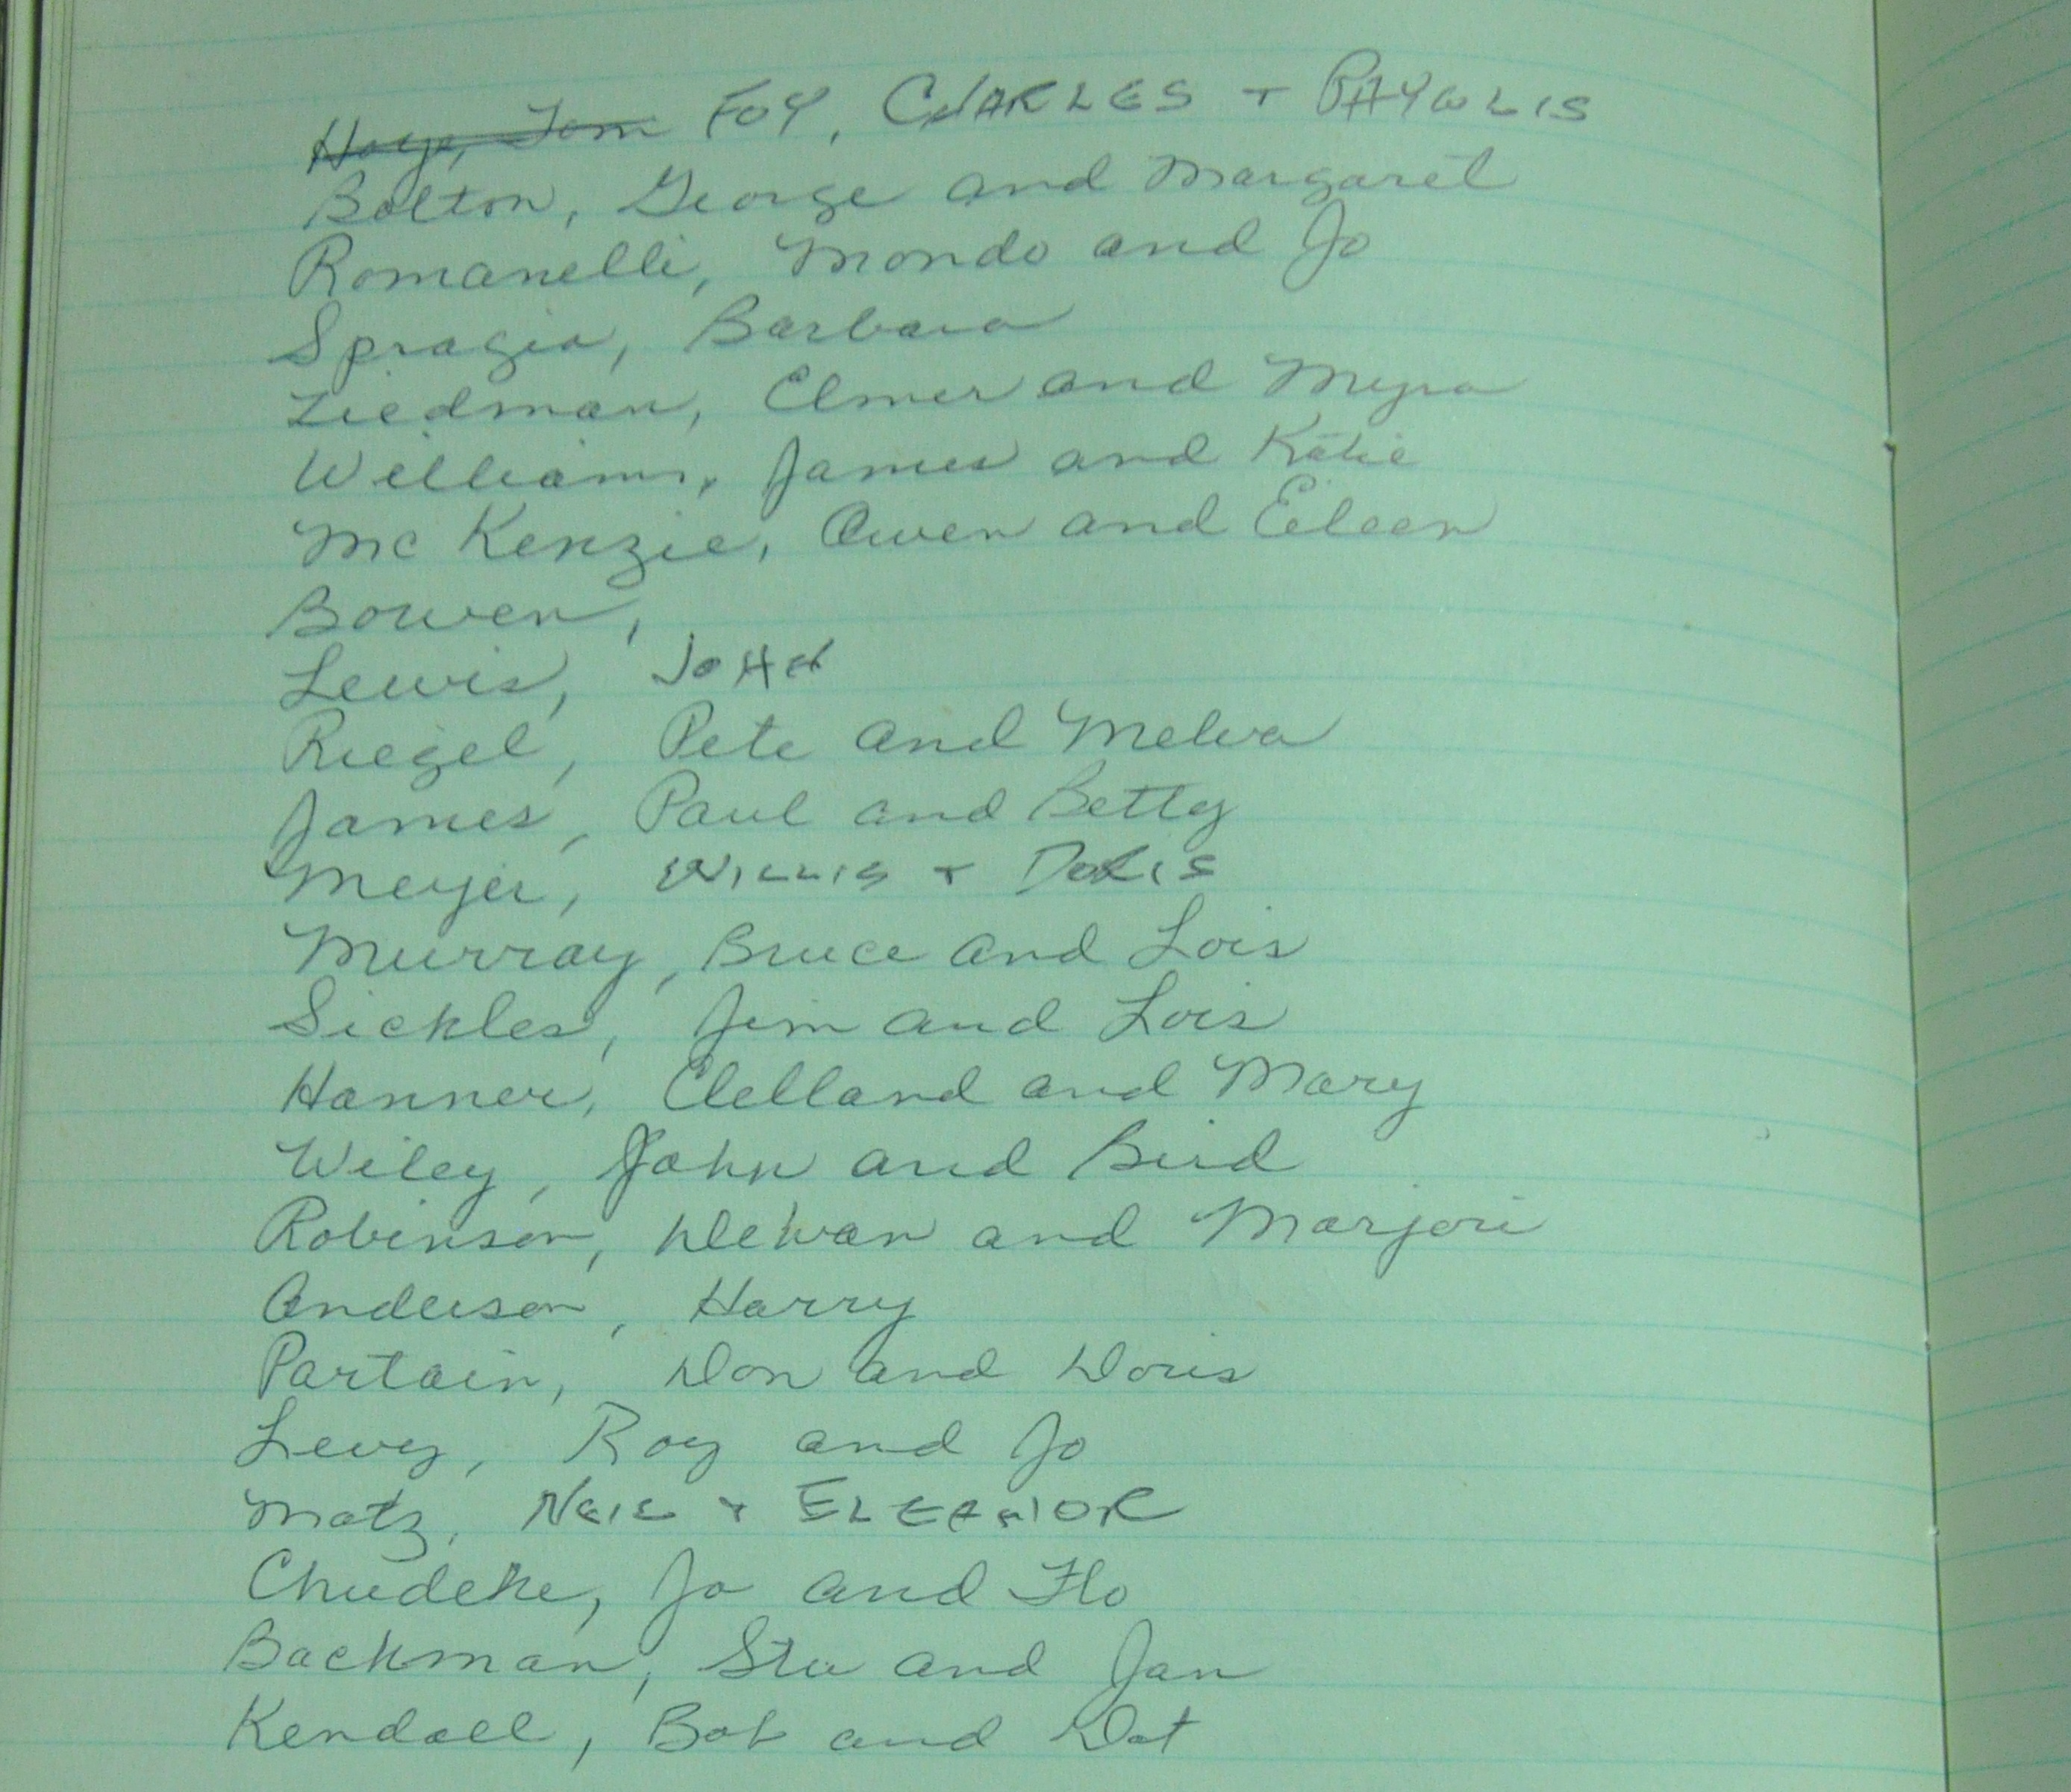 FOY, CHARLES + PHYLLIS
Bolton, George and Margaret
Romanelli, Mondo and Jo
Spragia, Barbara
Ziedman, Elmer and Myra
Williams, James and Katie
Mc Kenzie, Owen and Eileen
Bowen,
Lewis, JOHN
Riegel, Pete and Melva
James, Paul and Betty
Meyer, WILLIS + DORIS
Murray, Bruce and Lois
Sickles, Jim and Lois
Hanner, Clelland and Mary
Wiley, John and Bird
Robinson, DeWan and Marjori
Anderson, Harry
Partain, Don and Doris
Levy, Roy and Jo
Matz, NEIL + ELEANOR
Chudeke, Jo and Flo
Backman, Stu and Jan
Kendall, Bob and Dot